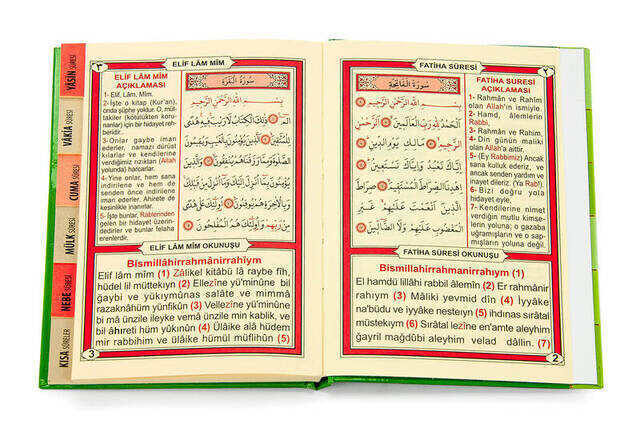 YÂSİN SÛRESİ
VÂKIA SÛRESİ
CUMA SÛRESİ
MÜLK SÛRESİ
NEBE SÛRESİ
KISA SÛRELER
٣
ELİF LÂM MÎM
ELİF LÂM MÎM
AÇIKLAMASI
1- Elif, Lâm, Mîm.
2-İşte o kitap (Kur'an),
onda şüphe yoktur. O, müt-
takiler (kötülükten korun-
anlar) için bir hidayet reh-
beridir.
3-Onlar gaybe iman
ederler, namazı dürüst
kılarlar ve kendilerine
verdiğimiz rızıktan (Allah
yolunda) harcarlar.
4-Yine onlar, hem sana
indirilene ve hem de
senden önce indirilene
iman ederler. Ahirete de
kesinlikle iman eylerler.
5-İşte bunlar, Rablerinden
gelen bir hidayet üzerin-
dedirler ve bunlar felaha
erenlerdir.
سُورَةُ الْبَقَرَةِ
بِسْمِ اللهِ الرَّحْمٰنِ الرَّحِيمِ
الٓمٓ ذٰلِكَ الْكِتَابُ لَا رَيْبَ فِيهِ هُدًى
لِلْمُتَّقِينَ الَّذِينَ يُؤْمِنُونَ بِالْغَيْبِ وَيُقِيمُونَ
الصَّلٰوةَ وَمِمَّا رَزَقْنَاهُمْ يُنْفِقُونَ وَالَّذِينَ
يُؤْمِنُونَ بِمَا أُنْزِلَ إِلَيْكَ وَمَا أُنْزِلَ مِنْ قَبْلِكَ
وَبِالْاٰخِرَةِ هُمْ يُوقِنُونَ أُولٰئِكَ عَلٰى هُدًى
مِنْ رَبِّهِمْ وَأُولٰئِكَ هُمُ الْمُفْلِحُونَ
ELİF LÂM MÎM OKUNUŞU
Bismillâhirrahmanirrahiym
Elif lâm mîm (1) Zâlikel kitâbü lâ raybe fîh,
hüdel lil müttekıyn (2) Ellezîne yü'minûne bil
ğaybi ve yükıymûnas salâte ve mimmâ
razaknâhüm yünfikûn (3) Vellezîne yü'minûne
bi mâ ünzile ileyke vemâ ünzile min kablik, ve
bil âhireti hüm yûkınûn (4) Ülâike alâ hüdem
mir rabbihim ve ülâike hümül müflihûn (5)
3
FATİHA SÛRESİ
٢
سُورَةُ الْفَاتِحَةِ
بِسْمِ اللهِ الرَّحْمٰنِ الرَّحِيمِ
اَلْحَمْدُ لِلّٰهِ رَبِّ الْعَالَمِينَ الرَّحْمٰنِ
الرَّحِيمِ مَالِكِ يَوْمِ الدِّينِ
إِيَّاكَ نَعْبُدُ وَإِيَّاكَ نَسْتَعِينُ
اِهْدِنَا الصِّرَاطَ الْمُسْتَقِيمَ صِرَاطَ
الَّذِينَ أَنْعَمْتَ عَلَيْهِمْ غَيْرِ
الْمَغْضُوبِ عَلَيْهِمْ وَلَا الضَّالِّينَ
FATİHA SURESİ
AÇIKLAMASI
1- Rahmân ve Rahîm
olan Allah'ın ismiyle.
2- Hamd, âlemlerin
Rabbi,
3- Rahmân ve Rahim,
4- Din günün maliki
olan Allah'a aittir.
5- (Ey Rabbimiz) Ancak
sana kulluk ederiz, ve
ancak senden yardım ve
inayet dileriz. (Ya Rab!).
6- Bizi doğru yola
hidayet eyle,
7- Kendilerine nimet
verdiğin mutlu kimse-
lerin yoluna; o gazaba
uğramışların ve o sap-
mışların yoluna değil.
FATİHA SÛRESİ OKUNUŞU
Bismillahirrahmanirrahıym (1)
El hamdü lillâhi rabbil âlemîn (2) Er rahmânir
rahıym (3) Mâliki yevmid dîn (4) İyyâke
na'büdu ve iyyâke nesteıyn (5) ihdınas sırâtal
müstekıym (6) Sırâtal lezîne en'amte aleyhim
ğayril mağdûbi aleyhim velad dâllin. (7)
2